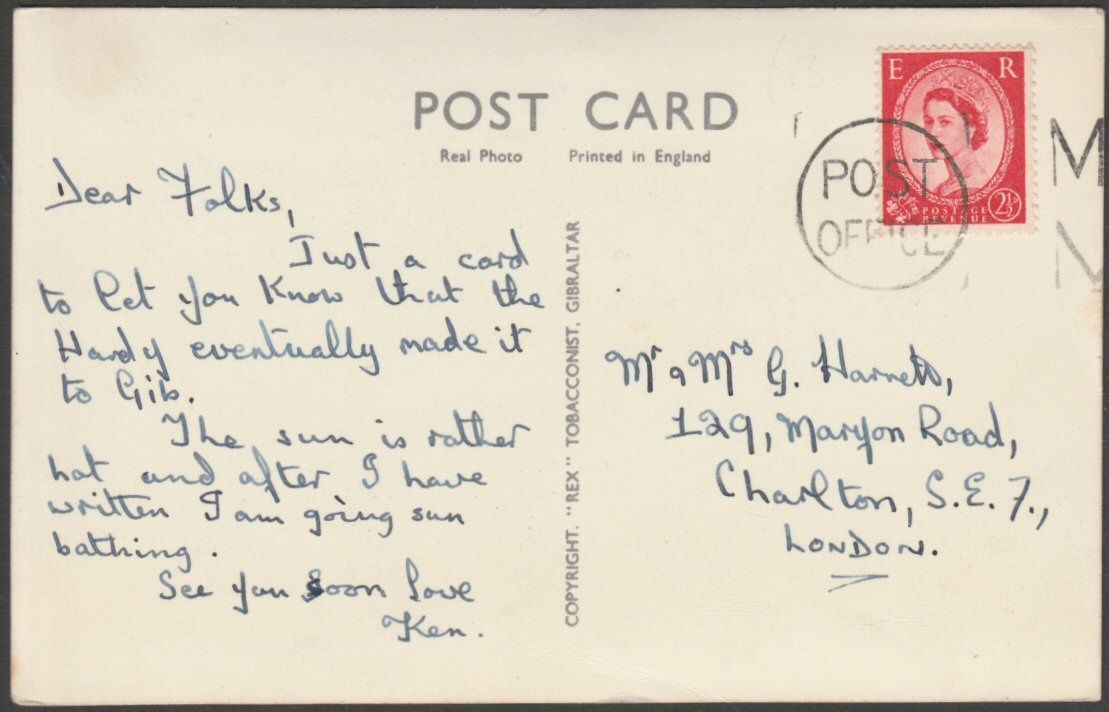 POST CARD
Real Photo Printed in England
E R
POSTAGE
REVENUE
2½D
POST
OFFICE
M
Dear Folks,
Just a card
to let you know that the
Hardy eventually made it
to Gib.
The sun is rather
hot and after I have
written I am going sun
bathing.
See you Soon love
Ken.
COPYRIGHT. "REX" TOBACCONIST, GIBRALTAR
Mr & Mrs G. Harnett,
129, Maryon Road,
Charlton, S.E.7.,
LONDON.